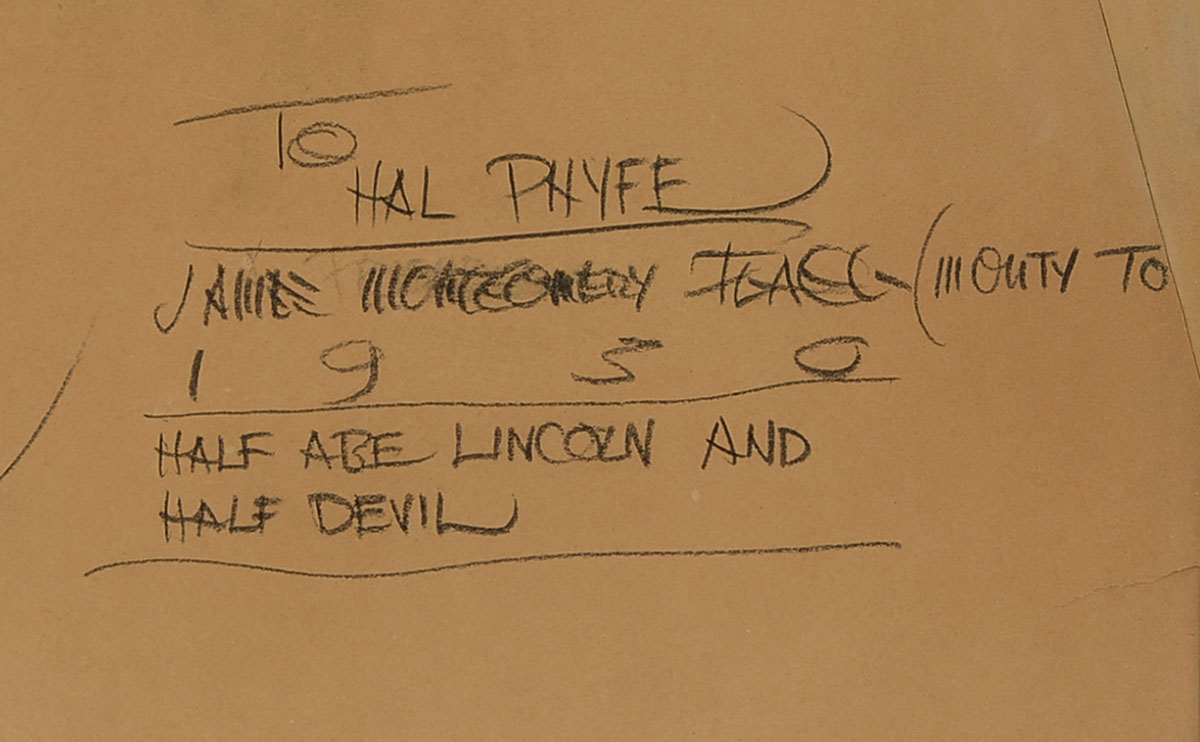 TO
HAL PHYFE
JAMES MONTGOMERY FLAGG (MONTY TO
1950
HALF ABE LINCOLN AND
HALF DEVIL